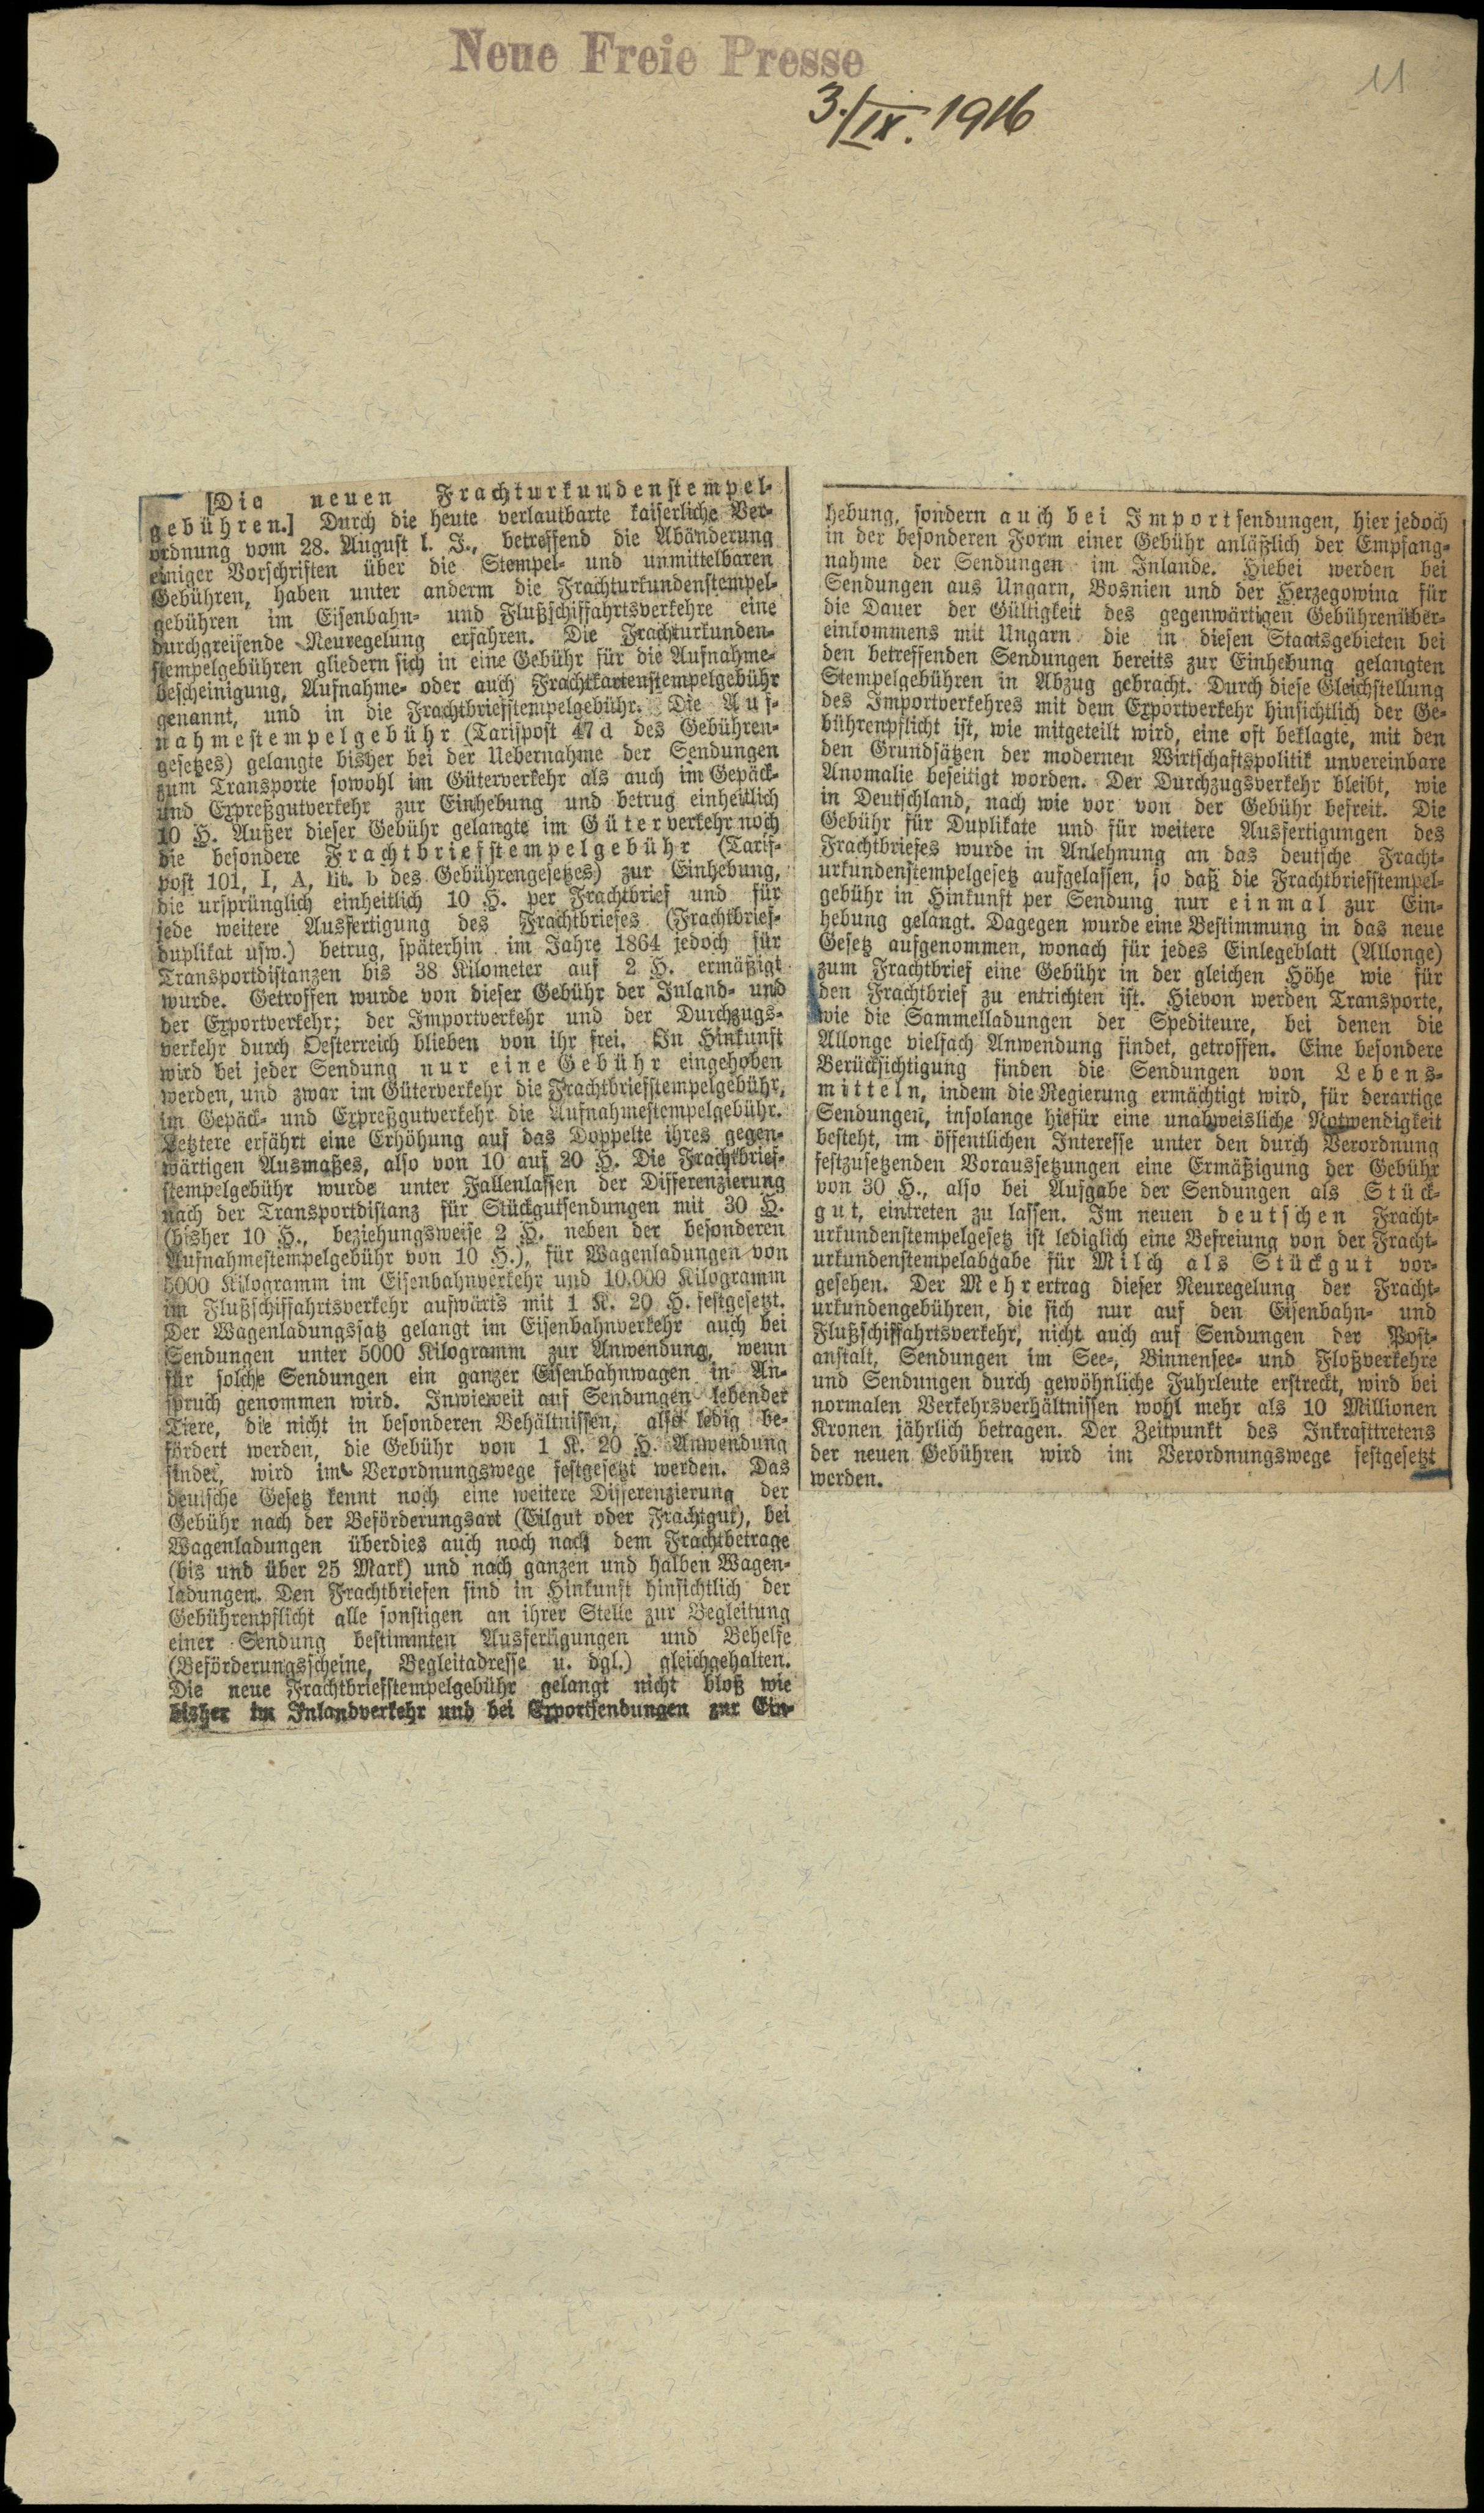 Neue Freie Presse
3./IX. 1916
11
[Die neuen Frachturkundenstempel-
gebühren.] Durch die heute verlautbarte kaiserliche Ver-
ordnung vom 28. August l. J., betreffend die Abänderung
einiger Vorschriften über die Stempel- und unmittelbaren
Gebühren, haben unter anderm die Frachturkundenstempel-
gebühren im Eisenbahn- und Flußschiffahrtsverkehre eine
durchgreifende Neuregelung erfahren. Die Frachturkunden-
stempelgebühren gliedern sich in eine Gebühr für die Aufnahme-
bescheinigung, Aufnahme- oder auch Frachtkartenstempelgebühr
genannt, und in die Frachtbriefstempelgebühr. Die Auf-
nahmestempelgebühr (Tarifpost 47 d des Gebühren-
gesetzes) gelangte bisher bei der Uebernahme der Sendungen
zum Transporte sowohl im Güterverkehr als auch im Gepäck-
und Expreßgutverkehr zur Einhebung und betrug einheitlich
10 H. Außer dieser Gebühr gelangte im Güterverkehr noch
die besondere Frachtbriefstempelgebühr (Tarif-
post 101, I, A, lit. b des Gebührengesetzes) zur Einhebung,
die ursprünglich einheitlich 10 H. per Frachtbrief und für
jede weitere Ausfertigung des Frachtbriefes (Frachtbrief-
duplikat usw.) betrug, späterhin im Jahre 1864 jedoch für
Transportdistanzen bis 38 Kilometer auf 2 H. ermäßigt
wurde. Getroffen wurde von dieser Gebühr der Inland- und
der Exportverkehr; der Importverkehr und der Durchzugs-
verkehr durch Oesterreich blieben von ihr frei. In Hinkunft
wird bei jeder Sendung nur eine Gebühr eingehoben
werden, und zwar im Güterverkehr die Frachtbriefstempelgebühr,
im Gepäck- und Expreßgutverkehr die Aufnahmestempelgebühr.
Letztere erfährt eine Erhöhung auf das Doppelte ihres gegen-
wärtigen Ausmaßes, also von 10 auf 20 H. Die Frachtbrief-
stempelgebühr wurde unter Fallenlassen der Differenzierung
nach der Transportdistanz für Stückgutsendungen mit 30 H.
(bisher 10 H., beziehungsweise 2 H. neben der besonderen
Aufnahmestempelgebühr von 10 H.), für Wagenladungen von
5000 Kilogramm im Eisenbahnverkehr und 10.000 Kilogramm
im Flußschiffahrtsverkehr aufwärts mit 1 K. 20 H. festgesetzt.
Der Wagenladungssatz gelangt im Eisenbahnverkehr auch bei
Sendungen unter 5000 Kilogramm zur Anwendung, wenn
für solche Sendungen ein ganzer Eisenbahnwagen in An-
spruch genommen wird. Inwieweit auf Sendungen lebender
Tiere, die nicht in besonderen Behältnissen, also ledig be-
fördert werden, die Gebühr von 1 K. 20 H. Anwendung
findet, wird im Verordnungswege festgesetzt werden. Das
deutsche Gesetz kennt noch eine weitere Differenzierung der
Gebühr nach der Beförderungsart (Eilgut oder Frachtgut), bei
Wagenladungen überdies auch noch nach dem Frachtbetrage
(bis und über 25 Mark) und nach ganzen und halben Wagen-
ladungen. Den Frachtbriefen sind in Hinkunft hinsichtlich der
Gebührenpflicht alle sonstigen an ihrer Stelle zur Begleitung
einer Sendung bestimmten Ausfertigungen und Behelfe
(Beförderungsscheine, Begleitadresse u. dgl.) gleichgehalten.
Die neue Frachtbriefstempelgebühr gelangt nicht bloß wie
bisher im Inlandverkehr und bei Exportsendungen zur Ein-
hebung, sondern auch bei Importsendungen, hier jedoch
in der besonderen Form einer Gebühr anläßlich der Empfang-
nahme der Sendungen im Inlande. Hiebei werden bei
Sendungen aus Ungarn, Bosnien und der Herzegowina für
die Dauer der Gültigkeit des gegenwärtigen Gebührenüber-
einkommens mit Ungarn die in diesen Staatsgebieten bei
den betreffenden Sendungen bereits zur Einhebung gelangten
Stempelgebühren in Abzug gebracht. Durch diese Gleichstellung
des Importverkehres mit dem Exportverkehr hinsichtlich der Ge-
bührenpflicht ist, wie mitgeteilt wird, eine oft beklagte, mit den
den Grundsätzen der modernen Wirtschaftspolitik unvereinbare
Anomalie beseitigt worden. Der Durchzugsverkehr bleibt, wie
in Deutschland, nach wie vor von der Gebühr befreit. Die
Gebühr für Duplikate und für weitere Ausfertigungen des
Frachtbriefes wurde in Anlehnung an das deutsche Fracht-
urkundenstempelgesetz aufgelassen, so daß die Frachtbriefstempel-
gebühr in Hinkunft per Sendung nur einmal zur Ein-
hebung gelangt. Dagegen wurde eine Bestimmung in das neue
Gesetz aufgenommen, wonach für jedes Einlegeblatt (Allonge)
zum Frachtbrief eine Gebühr in der gleichen Höhe wie für
den Frachtbrief zu entrichten ist. Hievon werden Transporte,
wie die Sammelladungen der Spediteure, bei denen die
Allonge vielfach Anwendung findet, getroffen. Eine besondere
Berücksichtigung finden die Sendungen von Lebens-
mitteln, indem die Regierung ermächtigt wird, für derartige
Sendungen, insolange hiefür eine unabweisliche Notwendigkeit
besteht, im öffentlichen Interesse unter den durch Verordnung
festzusetzenden Voraussetzungen eine Ermäßigung der Gebühr
von 30 H., also bei Aufgabe der Sendungen als Stück-
gut, eintreten zu lassen. Im neuen deutschen Fracht-
urkundenstempelgesetz ist lediglich eine Befreiung von der Fracht-
urkundenstempelabgabe für Milch als Stückgut vor-
gesehen. Der Mehrertrag dieser Neuregelung der Fracht-
urkundengebühren, die sich nur auf den Eisenbahn- und
Flußschiffahrtsverkehr, nicht auch auf Sendungen der Post-
anstalt, Sendungen im See-, Binnensee- und Floßverkehre
und Sendungen durch gewöhnliche Fuhrleute erstreckt, wird bei
normalen Verkehrsverhältnissen wohl mehr als 10 Millionen
Kronen jährlich betragen. Der Zeitpunkt des Inkrafttretens
der neuen Gebühren wird im Verordnungswege festgesetzt
werden.